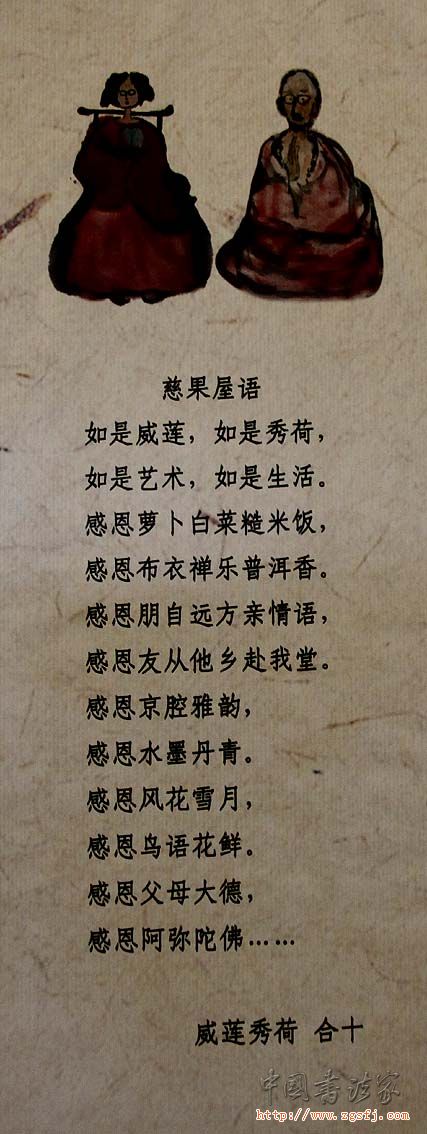 慈果屋语
如是威莲，如是秀荷，
如是艺术，如是生活。
感恩萝卜白菜糙米饭，
感恩布衣禅乐普洱香。
感恩朋自远方亲情语，
感恩友从他乡赴我堂。
感恩京腔雅韵，
感恩水墨丹青。
感恩风花雪月，
感恩鸟语花鲜。
感恩父母大德，
感恩阿弥陀佛……
威莲秀荷 合十
中国书法家
http://www.zgsfj.com